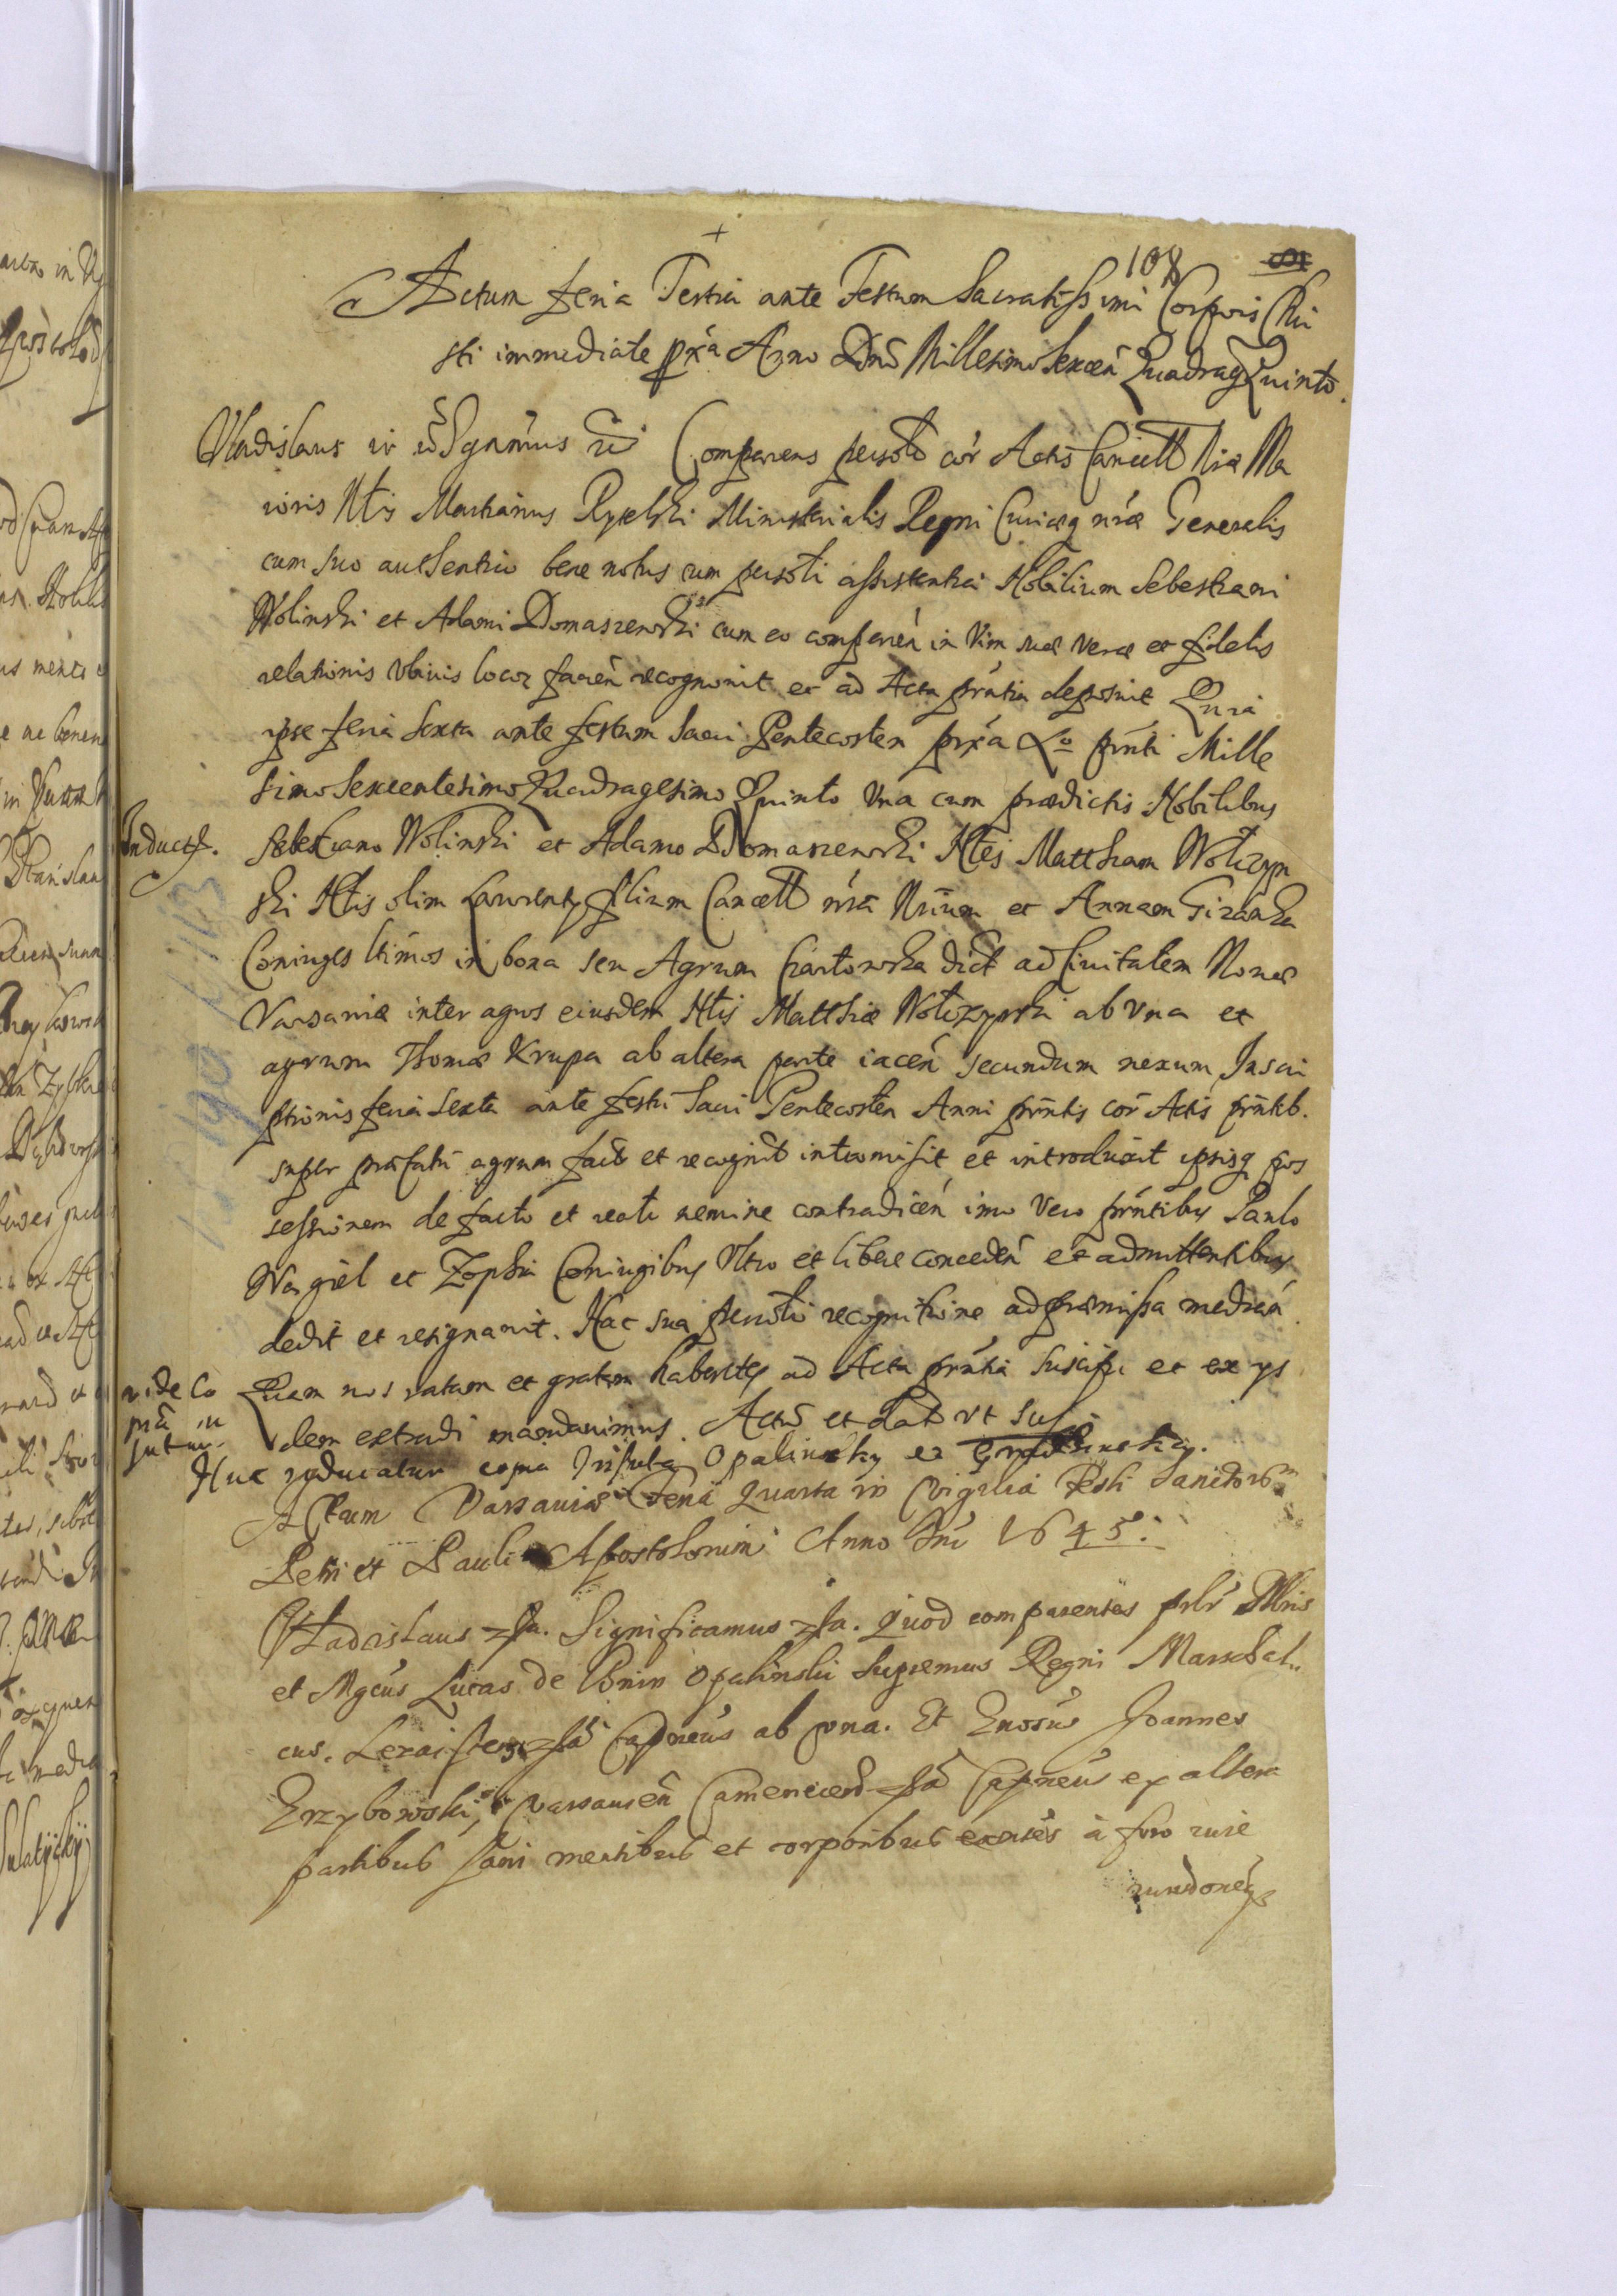 108
Actum feria Tertia ante Festum Sacratissimi Corporis Chri
sti immediate pxa Anno Dni Millesimo Sexcen Quadrag Quinto.
Vladislaus Comparens persolr cor Actis Cancell Nræ Ma
ioris Nlis Martianus Ryxelski Ministerialis Regni Curiæq nræ Generalis
cum suo authentico bene notus cum persoli assistentia Nobilium Sebestiani
Wolinski et Adami Domaszewski cum eo comparen in Vim suæ veræ et fidelis
relationis vbiuis locor facien recognouit et ad Acta prntia deposuit Quia
ipse feria Sexta ante festum Sacri Pentecosten prxa Ao prnti Mille
simo Sexcentesimo Quadragesimo Quinto vna cum prædictis Nobilibus
Inductio.
Sebestiano Wolinski et Adamo Domaszewski Nles Matthiam Wolczyn
ski Nlis olim Laurenty filium Cancell nræ Nrium et Annam Gizanka
Coniuges ltimos in bona seu Agrum Czartowska dict ad Ciuitatem Nouæ
Varsauiæ inter agros eiusdem Nlis Matthiæ Wolczynski ab vna et
agrum Thomæ Krupa ab altera parte iacen secundum nexum Inscri
ptionis feria sexta ante festu Sacri Pentecosten Anni prntis cor Actis prntib.
super præfatu agrum fact et recognit intromisit et introduxit ipsisq pos
sessionem de facto et reali nemine contradicen imo vero prntibus Paulo
Wągiel et Zophia Coniugibus vltro et libere conceden et admittentibus
dedit et resignauit. Hac sua persoli recognitione ad præmissa median.
vide Co
pia in
futur.
Quam nos ratam et gratam habentes ad Acta prntia suscipi et ex ys
dem extradi mandauimus. Actu et Dat vt sup
Huc inducatur copia Opalinsky et
Actum Varsauiæ Feria Quarta in Vigilia Festi Sanctorum
Petri et Pauli Apostolorum Anno Dni 1645.
Vladislaus zsa. Significamus zsa. Quod comparentes prlr Illris
et Mgcus Lucas de Bnin Opalinski Supremus Regni Marschal
cus, Lezaiscen zsa Capneus ab vna. Et Gnosus Joannes
Grzybowski, Varsauien Camenecen zsa Capneus ex altera
partibus sani mentibus et corporibus existes à foro iurie
iurisdoneq